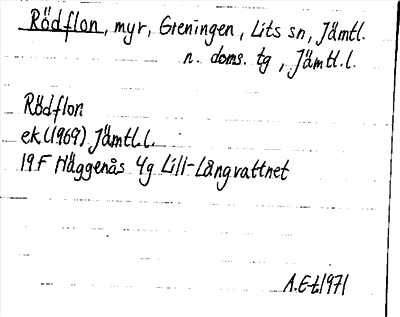 Rödflon, myr, Greningen, Lits sn, Jämtl.
n. doms. tg, Jämtl.l.
Rödflon
ek (1969) Jämtl.l.
19F Häggenås 4g Lill-Långvattnet
A.E-t 1971